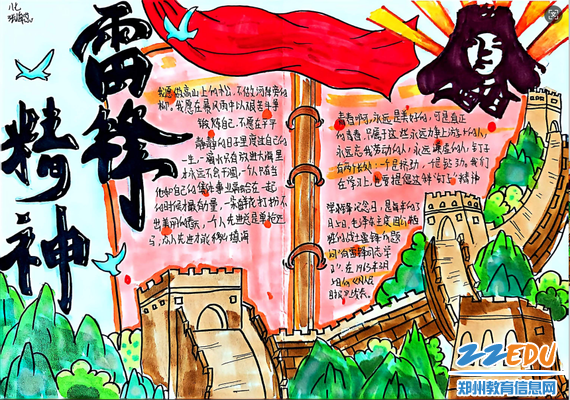 雷锋
精神
我愿做高山上的松,不做河岸旁的
柳。我愿在暴风雨中以艰苦斗争
锻炼自己,不愿在平平
静静的日子里度过自己的
一生。一滴水只有放进大海里
才永远不会干涸,一个人只有当
他把自己和集体事业融合在一起
的时候才最有力量,一朵鲜花打扮不
出美丽的春天,一个人先进总是单枪匹
马,众人先进才能移山填海
青春啊,永远是美好的,可是真正
的青春,只属于这些永远力争上游的人,
永远忘我劳动的人,永远谦虚的人。钉子
有两个长处:一个是挤劲,一个是钻劲,我们
在学习上,也要提倡这种"钉子"精神
学雷锋纪念日,是每年的3
月5日,
"向雷锋同志学
习"。在1963年3月
ZZEDU
郑州教育信息网